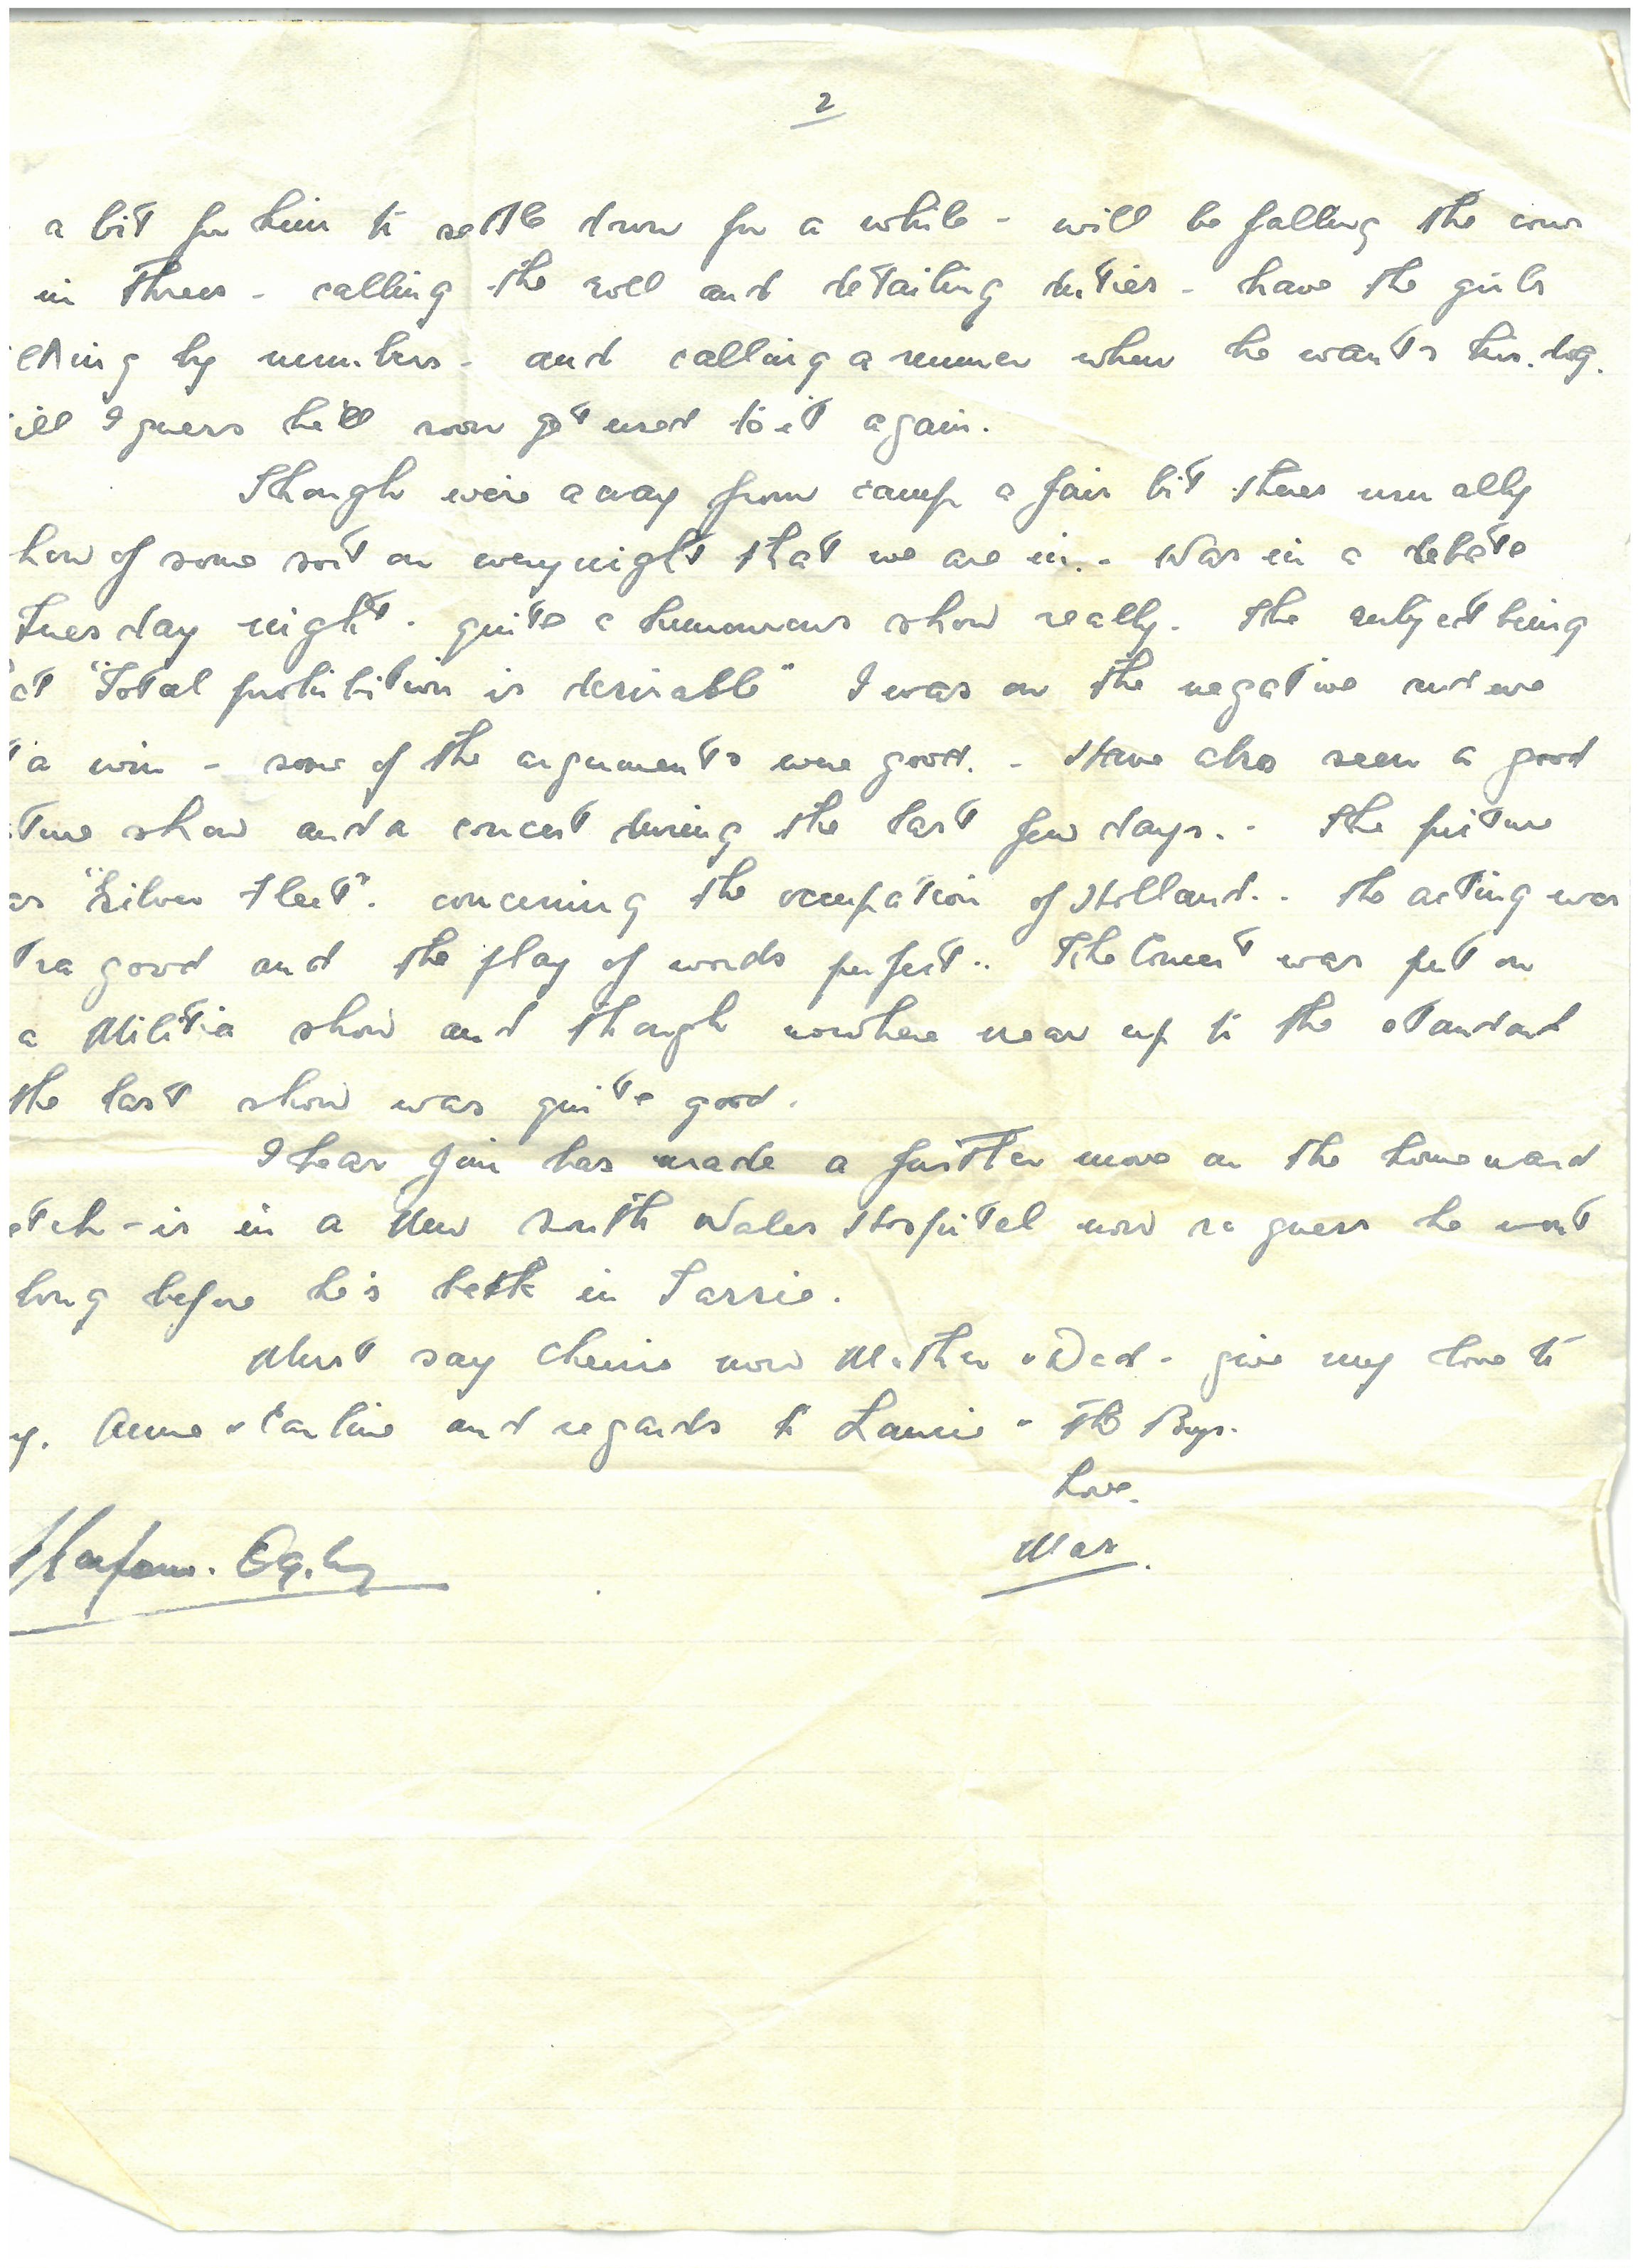 2
a bit for him to settle down for a while - will be falling the cows
in threes - calling the roll and detailing duties - have the girls
by numbers - and calling a runner when he wants his dog.
ill I guess he'll soon get used to it again.
Though we're away from camp a fair bit theres usually
how of some sort on every night that we are in. - Was in a debate
Tuesday night - quite a humourous show really. The subject being
at "Total prohibition is desirable" I was on the negative and we
t a win - some of the arguments were good. - Have also seen a good
ture show and a concert during the last few days. - The picture
as "Silver Fleet". concerning the occupation of Holland. - the acting was
tra good and the play of words perfect. - The Concert was put on
a Militia show and though nowhere near up to the standard
the last show was quite good.
I hear Jim has made a further move on the homeward
etch - is in a New South Wales Hospital now so guess he wont
long before he's back in Tassie.
Must say Cheerio now Mother & Dad - give my love to
y. Anne & Pauline and regards to Laurie & The Boys.
Love.
Max.